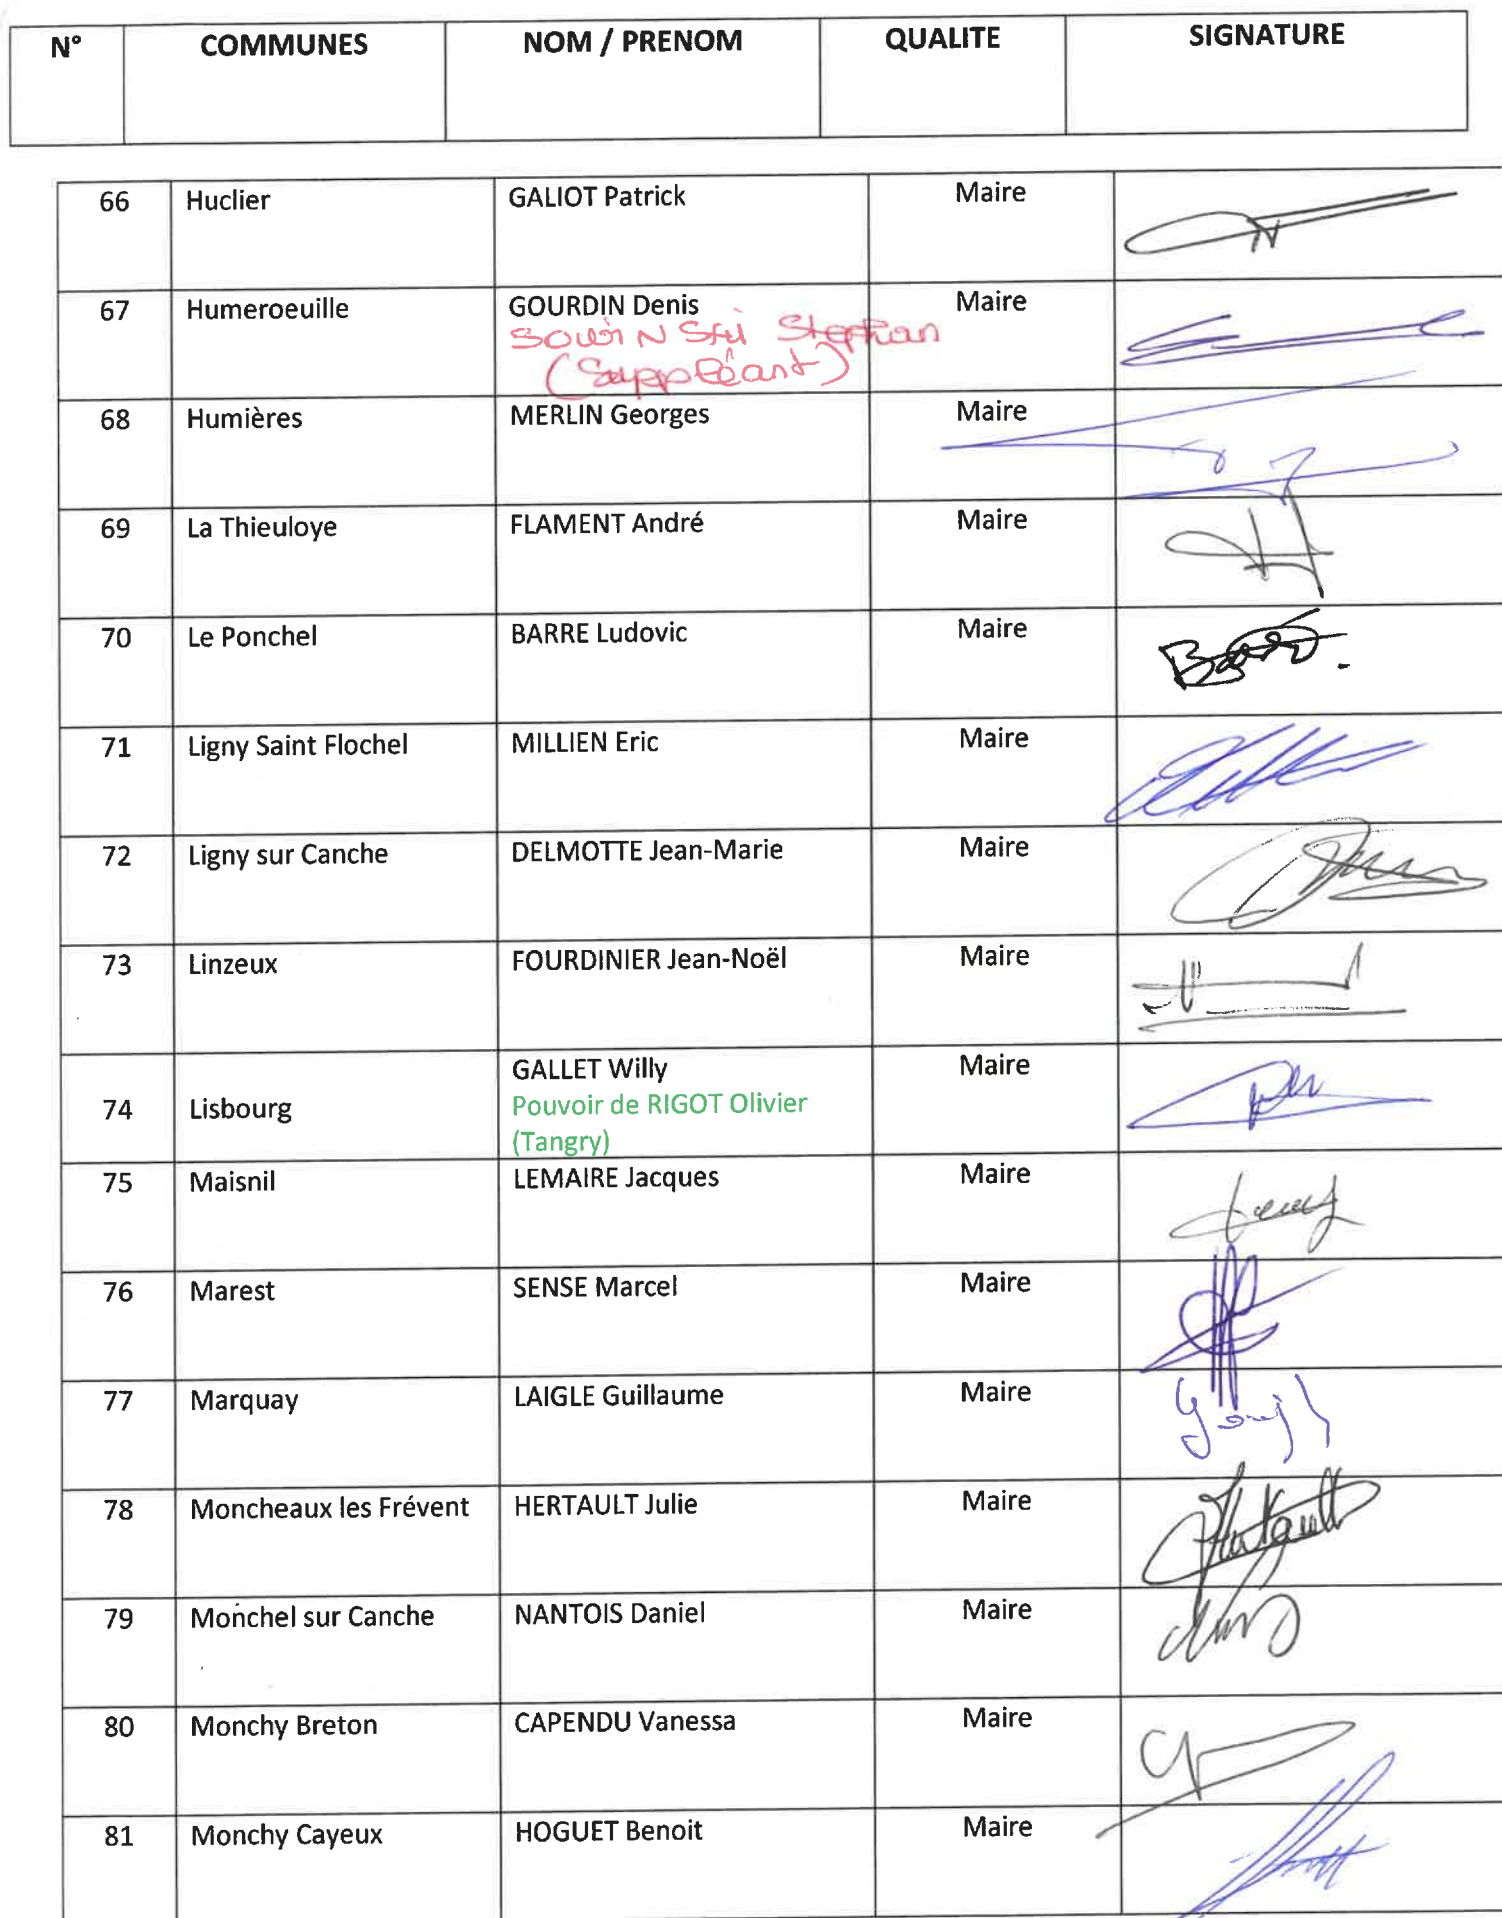 N° COMMUNES NOM / PRENOM QUALITE SIGNATURE
66 Huclier GALIOT Patrick Maire
67 Humeroeuille GOURDIN Denis Maire
Stephan
(Suppléant)
68 Humières MERLIN Georges Maire
69 La Thieuloye FLAMENT André Maire
70 Le Ponchel BARRE Ludovic Maire
71 Ligny Saint Flochel MILLIEN Eric Maire
72 Ligny sur Canche DELMOTTE Jean-Marie Maire
73 Linzeux FOURDINIER Jean-Noël Maire
74 Lisbourg GALLET Willy Maire
Pouvoir de RIGOT Olivier
(Tangry)
75 Maisnil LEMAIRE Jacques Maire
76 Marest SENSE Marcel Maire
77 Marquay LAIGLE Guillaume Maire
78 Moncheaux les Frévent HERTAULT Julie Maire
Hertault
79 Monchel sur Canche NANTOIS Daniel Maire
80 Monchy Breton CAPENDU Vanessa Maire
81 Monchy Cayeux HOGUET Benoit Maire